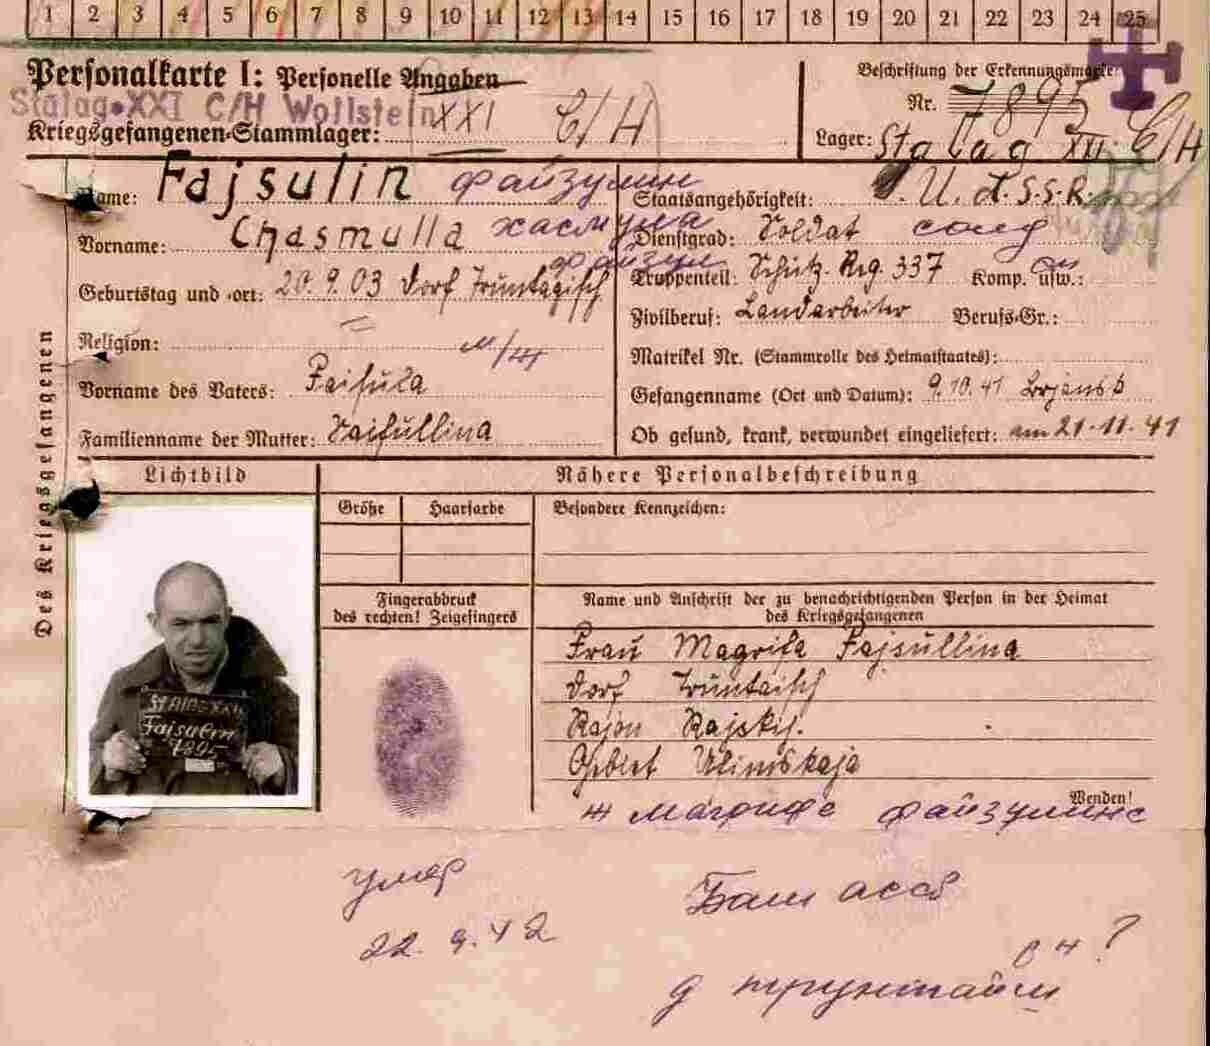 1 2 3 4 5 6 7 8 9 10 11 12 13 14 15 16 17 18 19 20 21 22 23 24 25
Personalkarte I: Personelle Angaben
Beschriftung der Erkennungsmarke
Nr. 7895
Stalag XXI C/H Wollstein
Kriegsgefangenen-Stammlager: XXI C/H
Lager: Stalag XXI C/H
Des Kriegsgefangenen
Name: Fajsulin Файзулин
Staatsangehörigkeit: U.d.S.S.R.
Vorname: Chasmulla Хасмула
Dienstgrad: Soldat солд
Файзул
Geburtstag und -ort: 20.9.03 Dorf Trüntagisch
Truppenteil: Schütz. Reg. 337 Komp. usw.:
Zivilberuf: Landarbeiter Berufs-Gr.:
Religion:
Matrikel Nr. (Stammrolle des Heimatstaates):
Vorname des Vaters: Faisula
Gefangennahme (Ort und Datum): 9.10.41 Brjansk
Familienname der Mutter: Saifullina
Ob gesund, krank, verwundet eingeliefert: am 21.11.41
Lichtbild
Nähere Personalbeschreibung
Größe Haarfarbe Besondere Kennzeichen:
Fingerabdruck
des rechten! Zeigefingers
Name und Anschrift der zu benachrichtigenden Person in der Heimat
des Kriegsgefangenen
Frau Magrifa Fajsullina
Dorf Trüntaisch
Rajon Rajskij.
Gebiet Ufimskaja
Stalag XXI
Fajsulin
7895
Wenden!
ж Магрифе Файзулине
умер
22.9.42
Баш асср
р н ?
д Трунтайш